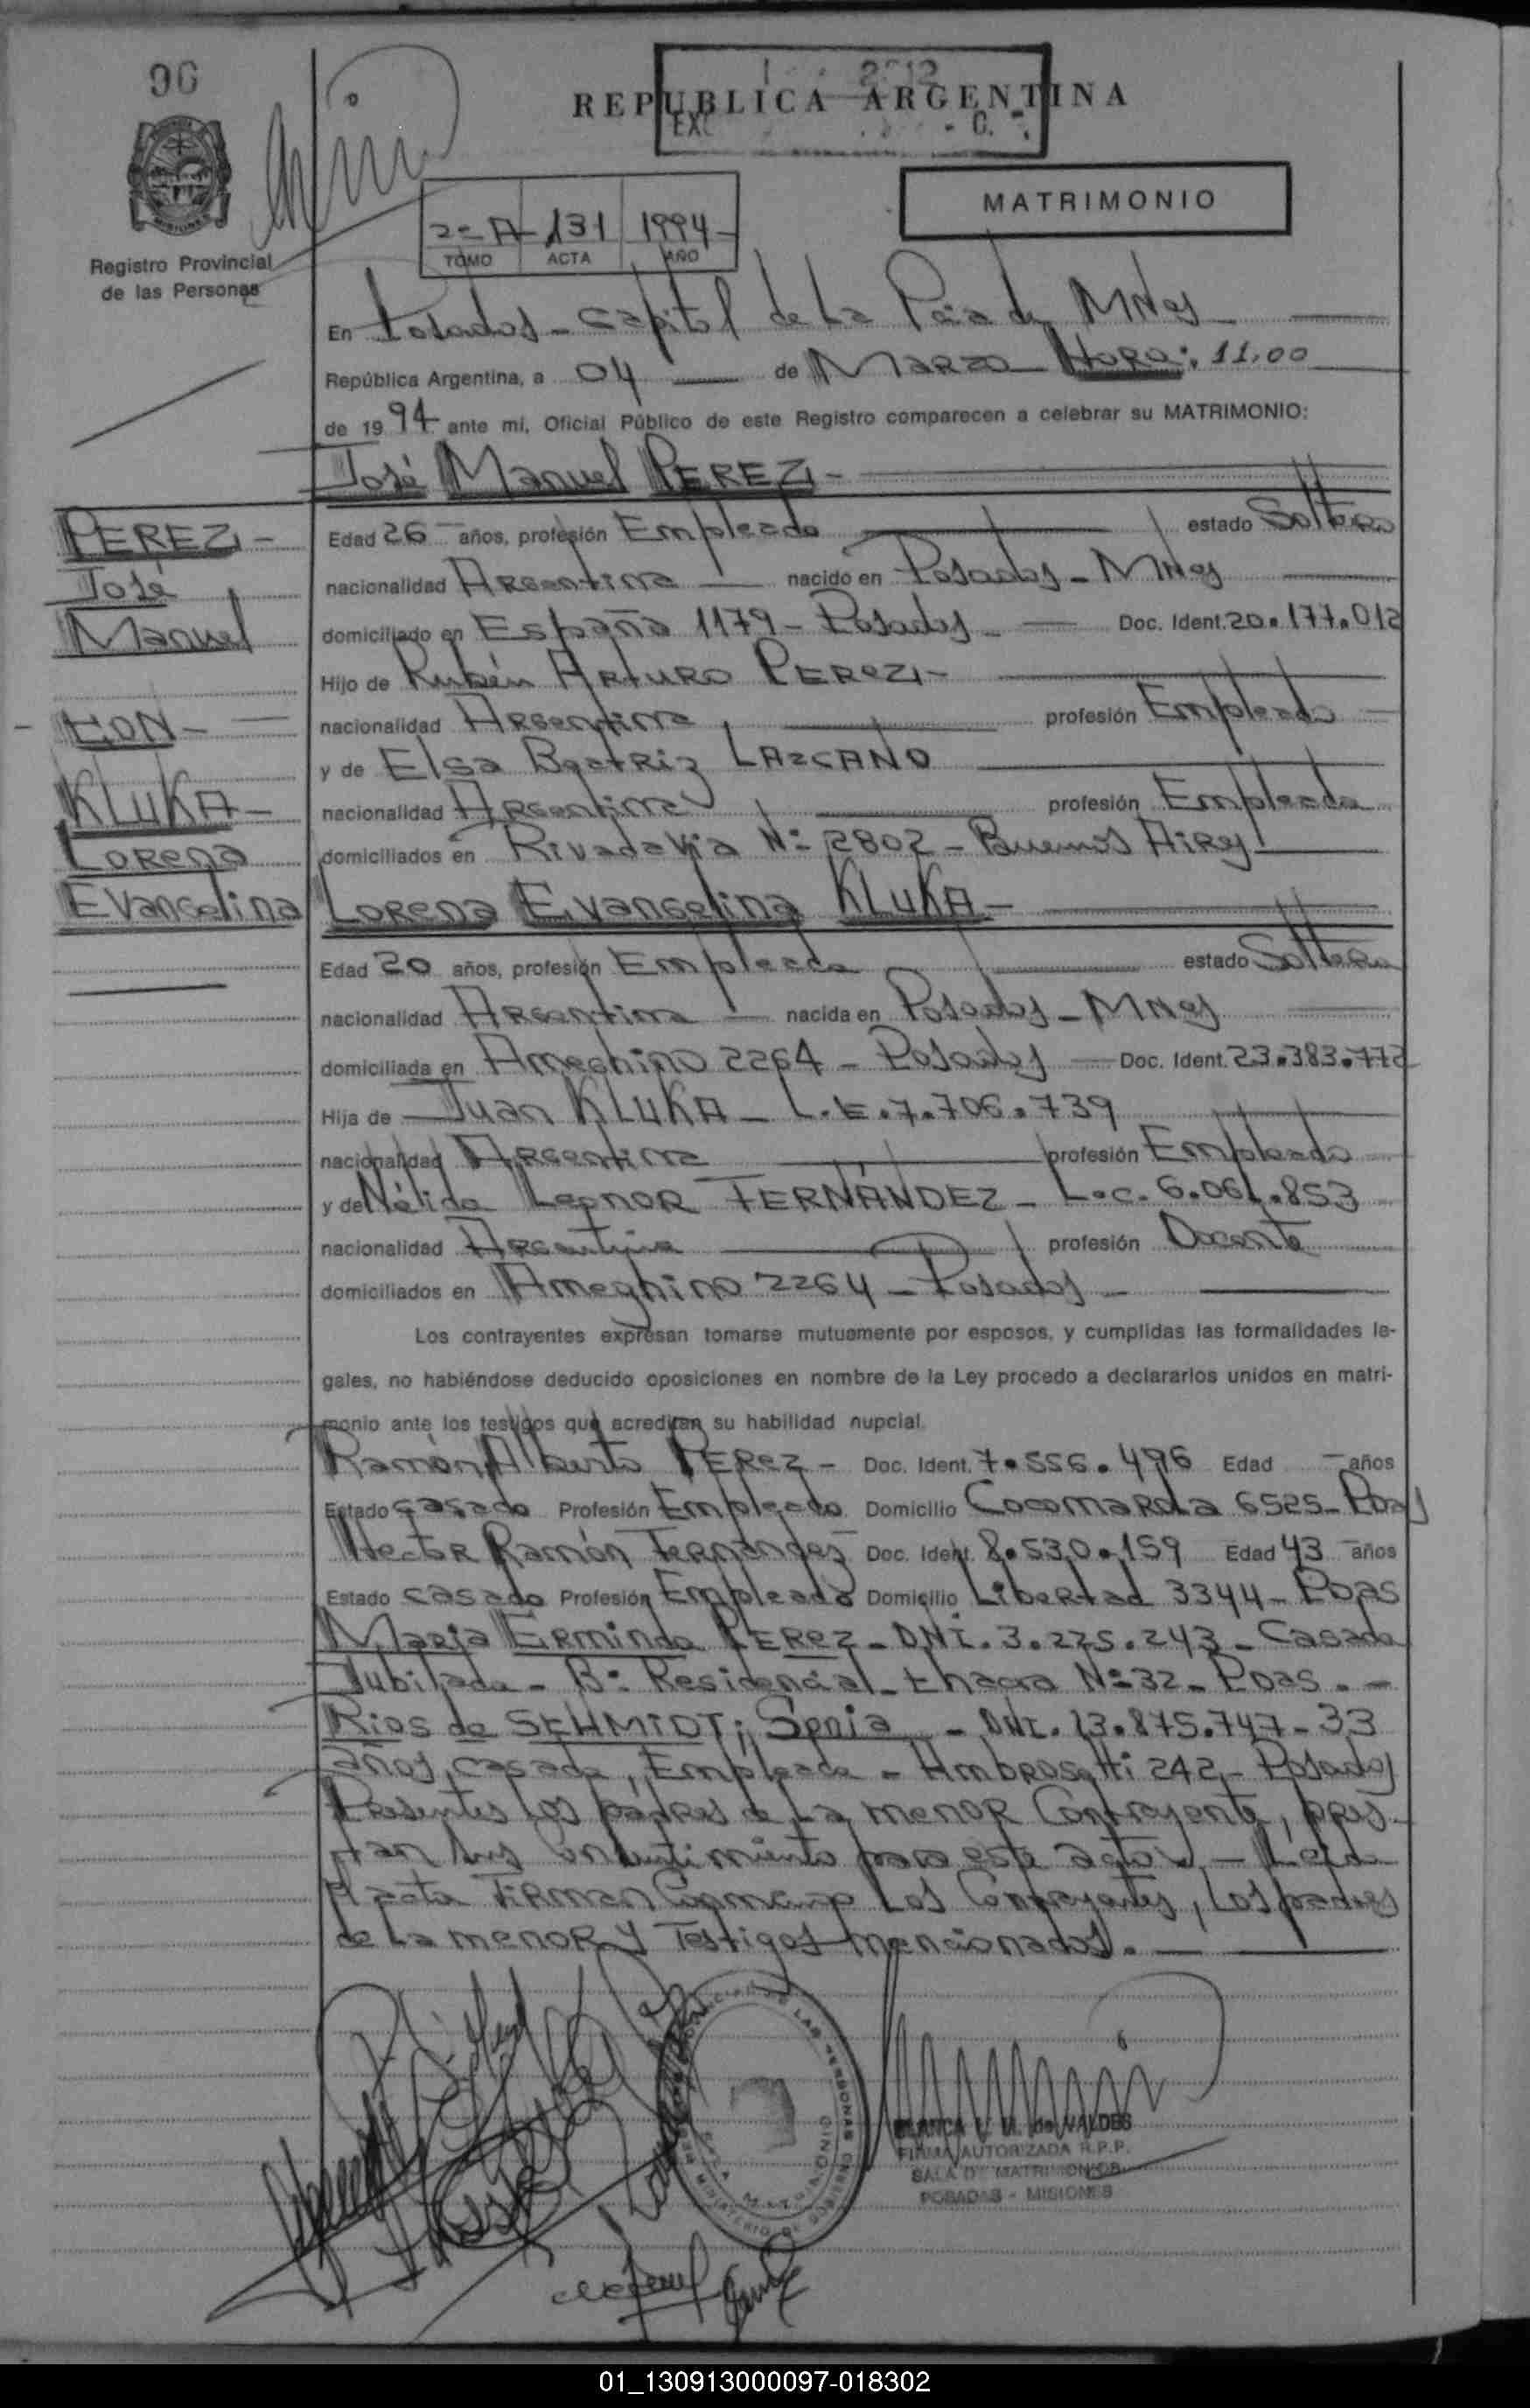 96
REPUBLICA ARGENTINA
MATRIMONIO
Registro Provincial
de las Personas
2º A 131 1994
TOMO ACTA AÑO
En Posadas - Capital de La Pcia de MNes
República Argentina, a 04 de Marzo Hora: 11,00
de 1994 ante mi, Oficial Público de este Registro comparecen a celebrar su MATRIMONIO:
José Manuel PEREZ -
PEREZ -
José
Manuel
- CON -
KLUKA -
Lorena
Evangelina
Edad 26 años, profesión Empleado estado Soltero
nacionalidad Argentina nacido en Posadas - MNes
domiciliado en España 1179 - Posadas - Doc. Ident. 20.177.012
Hijo de Rubén Arturo PEREZ -
nacionalidad Argentina profesión Empleado
y de Elsa Beatriz LAZCANO
nacionalidad Argentina profesión Empleada
domiciliados en Rivadavia Nº 2802 - Buenos Aires
Lorena Evangelina KLUKA -
Edad 20 años, profesión Empleada estado Soltera
nacionalidad Argentina nacida en Posadas - MNes
domiciliada en Ameghino 2264 - Posadas Doc. Ident. 23.383.772
Hija de Juan KLUKA - L.E. 7.706.739
nacionalidad Argentina profesión Empleado
y de Nélida Leonor FERNÁNDEZ - L.C. 6.061.853
nacionalidad Argentina profesión Docente
domiciliados en Ameghino 2264 - Posadas -
Los contrayentes expresan tomarse mutuamente por esposos, y cumplidas las formalidades le-
gales, no habiéndose deducido oposiciones en nombre de la Ley procedo a declararlos unidos en matri-
monio ante los testigos que acreditan su habilidad nupcial.
Ramón Alberto PEREZ - Doc. Ident. 7.556.496 Edad - años
Estado casado Profesión Empleado Domicilio Cocomarola 6525 - Pdas
Hector Ramón Fernández Doc. Ident. 8.530.159 Edad 43 años
Estado casado Profesión Empleado Domicilio Libertad 3344 - Pdas
Maria Erminda PEREZ - DNI. 3.225.243 - Casada
Jubilada - Bº Residencial - Chacra Nº 32 - Pdas. -
Rios de SCHMIDT; Sonia - DNI. 13.875.747 - 33
años, casada, Empleada - Ambrosetti 242 - Posadas
Presentes los padres de La menor Contrayente, pres-
tan sus Consentimiento para este acto. - Leída
el acta Firman Conmigo Los Contrayentes, Los padres
de La menor y Testigos mencionados. -
BLANCA V. M. de VALDES
FIRMA AUTORIZADA R.P.P.
SALA DE MATRIMONIOS
POSADAS - MISIONES
01_130913000097-018302